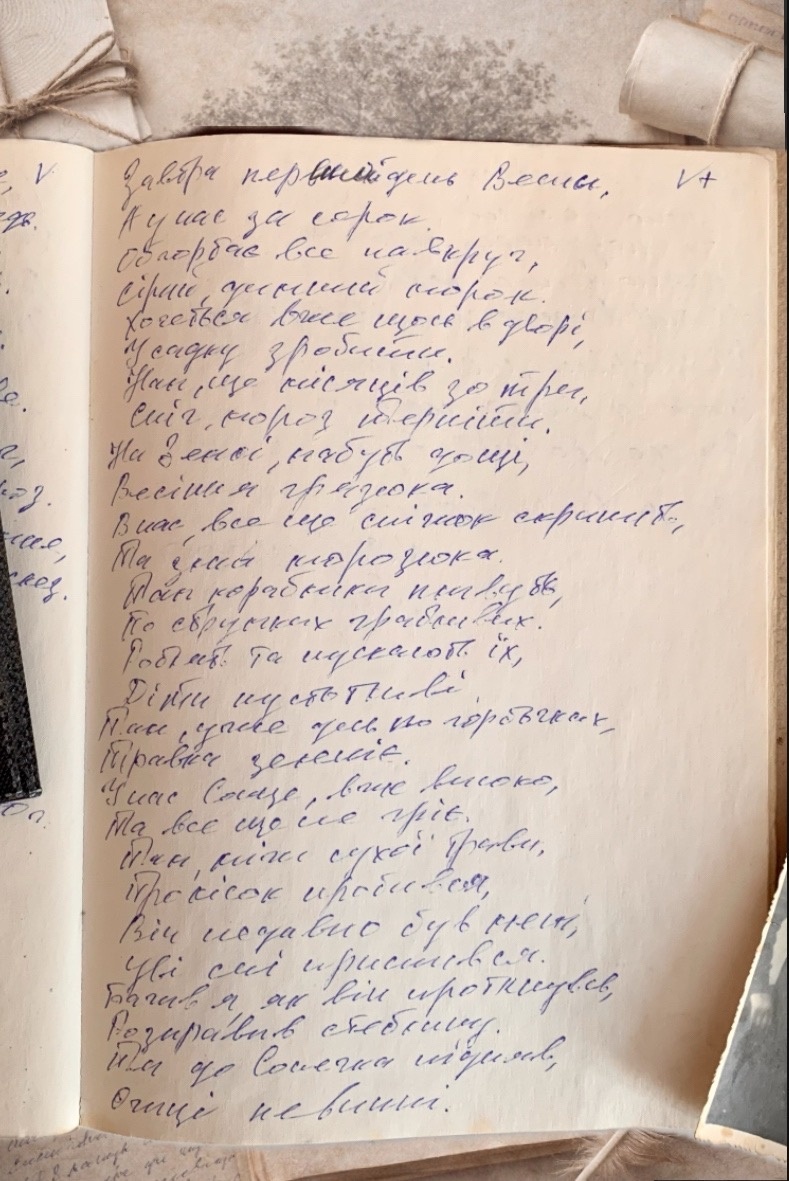 Завтра первий день Весни,
А у нас за сорок.
Обгортає все навкруг,
Сірий, димний морок.
Хочеться вже щось в дворі,
У садку зробити.
Нам, ще місяців зо три,
Сніг, мороз терпіти.
На Землі, мабуть дощі,
Весіння грязюка.
В нас, все ще сніжок скрипить,
Та злий морозюка.
Там кораблики пливуть,
По струмках грайливих.
Роблять та пускають їх,
Діти пустотливі
Там, уже десь по горбочках,
Травка зеленіє.
У нас Сонце, вже високо,
Та все ще не гріє.
Там, між сухої трави,
Пролісок пробився,
Він недавно був мені,
Уві сні приснився.
Бачив я як він проткнувсь,
Розправив стеблину.
Та до Сонечка підняв,
Очиці невинні.